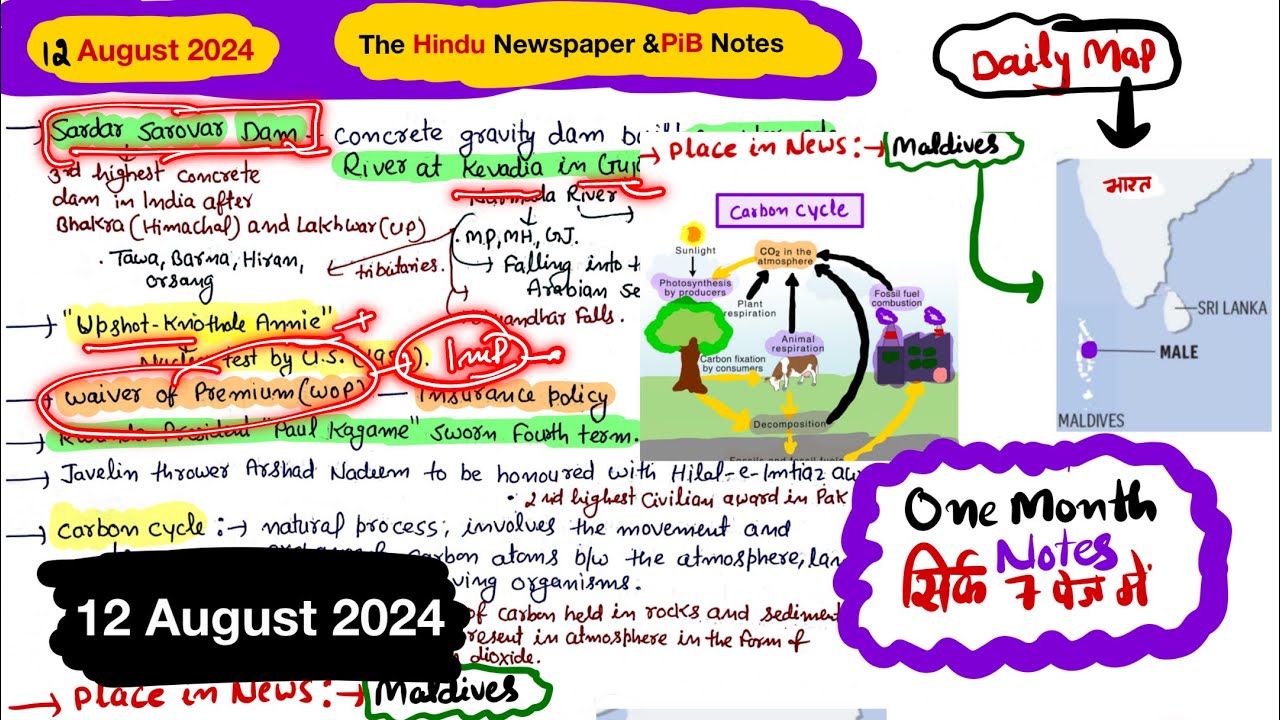 12 August 2024
The Hindu Newspaper &PiB Notes
Daily Map
Sardar Sarovar Dam
concrete gravity dam
River at Kevadia in Guj
3rd highest concrete
dam in India after
Bhakra (Himachal) and Lakhwar (UP)
River
M.P, MH, GJ.
Falling into
Arabian se
tributaries.
Tawa, Barna, Hiran,
orsang
Falls.
"Upshot-Knothole Annie"
test by U.S.
Imp
Waiver of Premium (WOP) — Insurance policy
President "Paul Kagame" sworn Fourth term.
Javelin thrower Arshad Nadeem to be honoured with Hilal-e-Imtiaz aw
• 2nd highest Civilian award in Pak
Carbon cycle :→ natural process; involves the movement and
carbon atoms b/w the atmosphere, lan
ving organisms.
of carbon held in rocks and sedimen
resent in atmosphere in the form of
dioxide.
12 August 2024
→ Place in News:→ Maldives
→ Place in News:→ Maldives
Carbon cycle
Sunlight
CO₂ in the
atmosphere
Photosynthesis
by producers
Plant
respiration
Fossil fuel
combustion
Animal
respiration
Carbon fixation
by consumers
Decomposition
भारत
SRI LANKA
MALE
MALDIVES
One Month
Notes
सिर्फ 7 पेज में